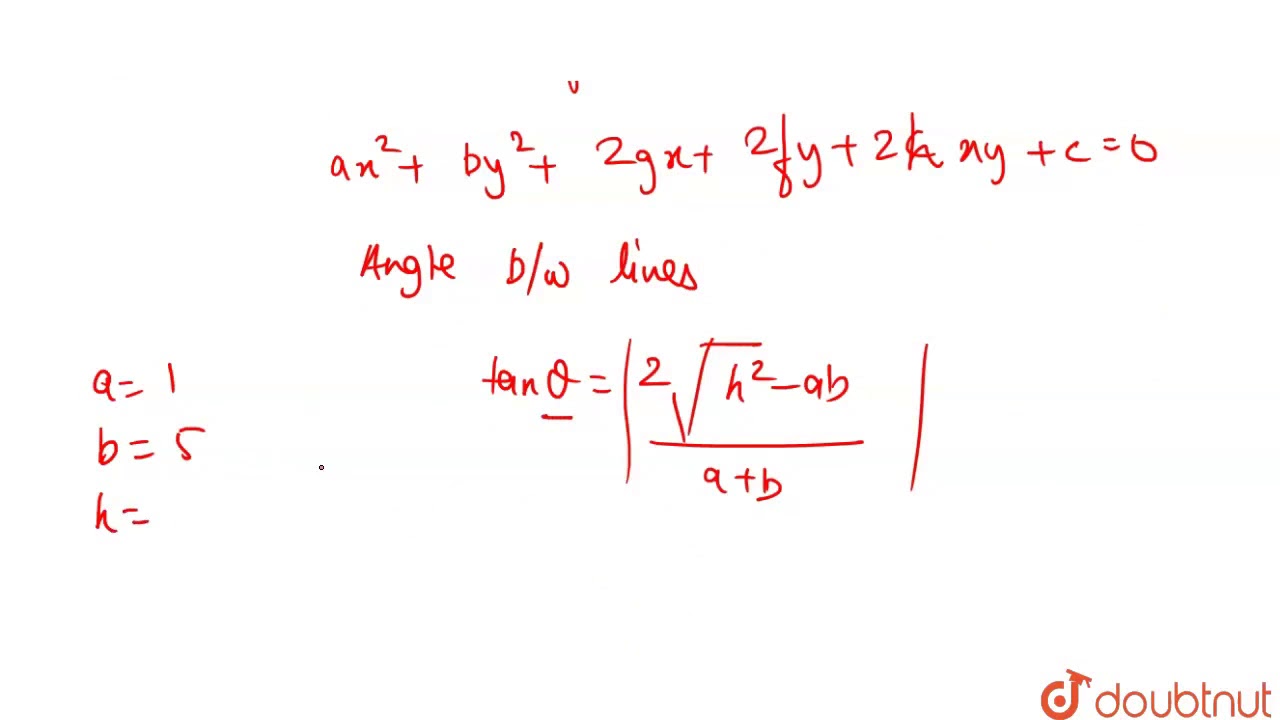 ax²+ by²+ 2gx+ 2fy+2h xy +c=0
Angle b/w lines
a= 1
b= 5
h=
tanθ = | 2√h²-ab / a+b |
doubtnut